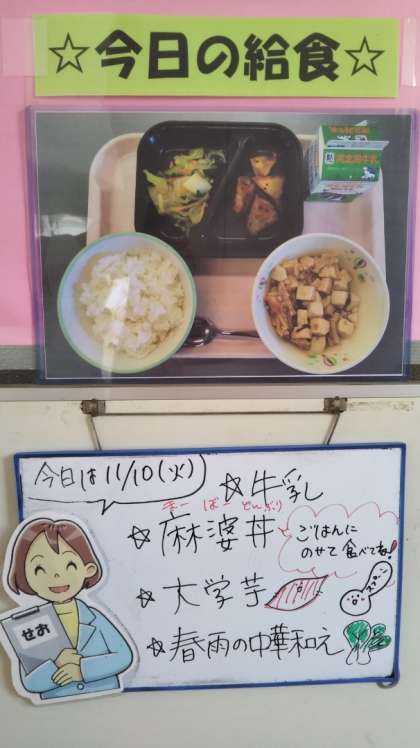 ☆今日の給食☆
今日は11/10(火)
☆牛乳
まーぼーどんぶり
☆麻婆丼
ごはんに
のせて食べてね!
スプーン
☆大学芋
☆春雨の中華和え
せお